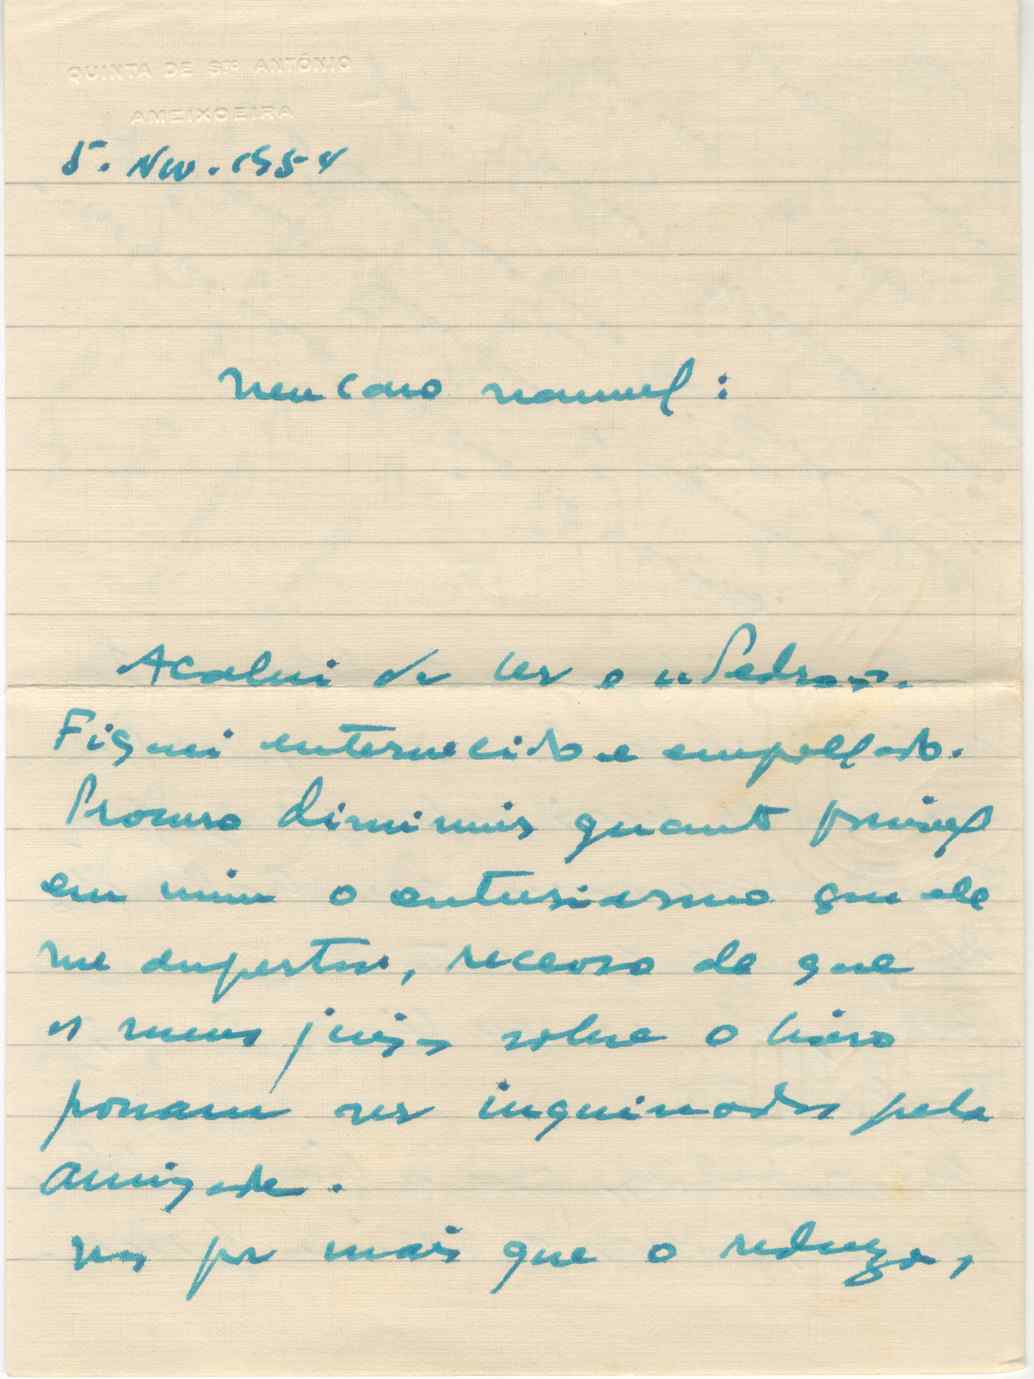 QUINTA DE STO ANTÓNIO
AMEIXOEIRA
5. Nov. 1954
Meu caro Manuel:
Acabei de ler o "Pedro".
Fiquei enternecido e empolgado.
Procuro diminuir quanto possível
em mim o entusiasmo que ele
me desperta, receoso de que
os meus juízos sobre o livro
possam ser inquinados pela
amizade.
Mas por mais que o reduza,